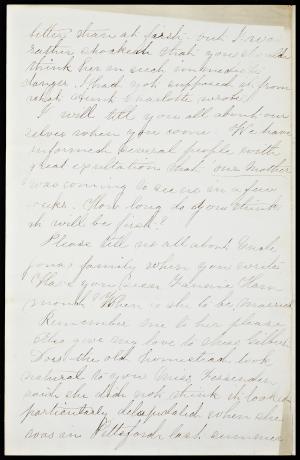 better than at first - but I was
rather shocked that you should
think her in such immediate
danger. I had not supposed it from
what Aunt Charlotte wrote.
I will tell you all about our
selves when you come. We have
informed several people with
great exultation that "our Mother
was coming to see us in a few
weeks. How long do you think
it will be first?
Please tell us all about Uncle
Jonas family when you write.
Have you seen Fannie Ham
mond? When is she to be married
Remember me to her please
Also give my love to Miss Gilbert
Does the old homestead look
natural to you Miss Fessenden
said she did not think it looked
particularly delapidated when she
was in Pittsford last summer